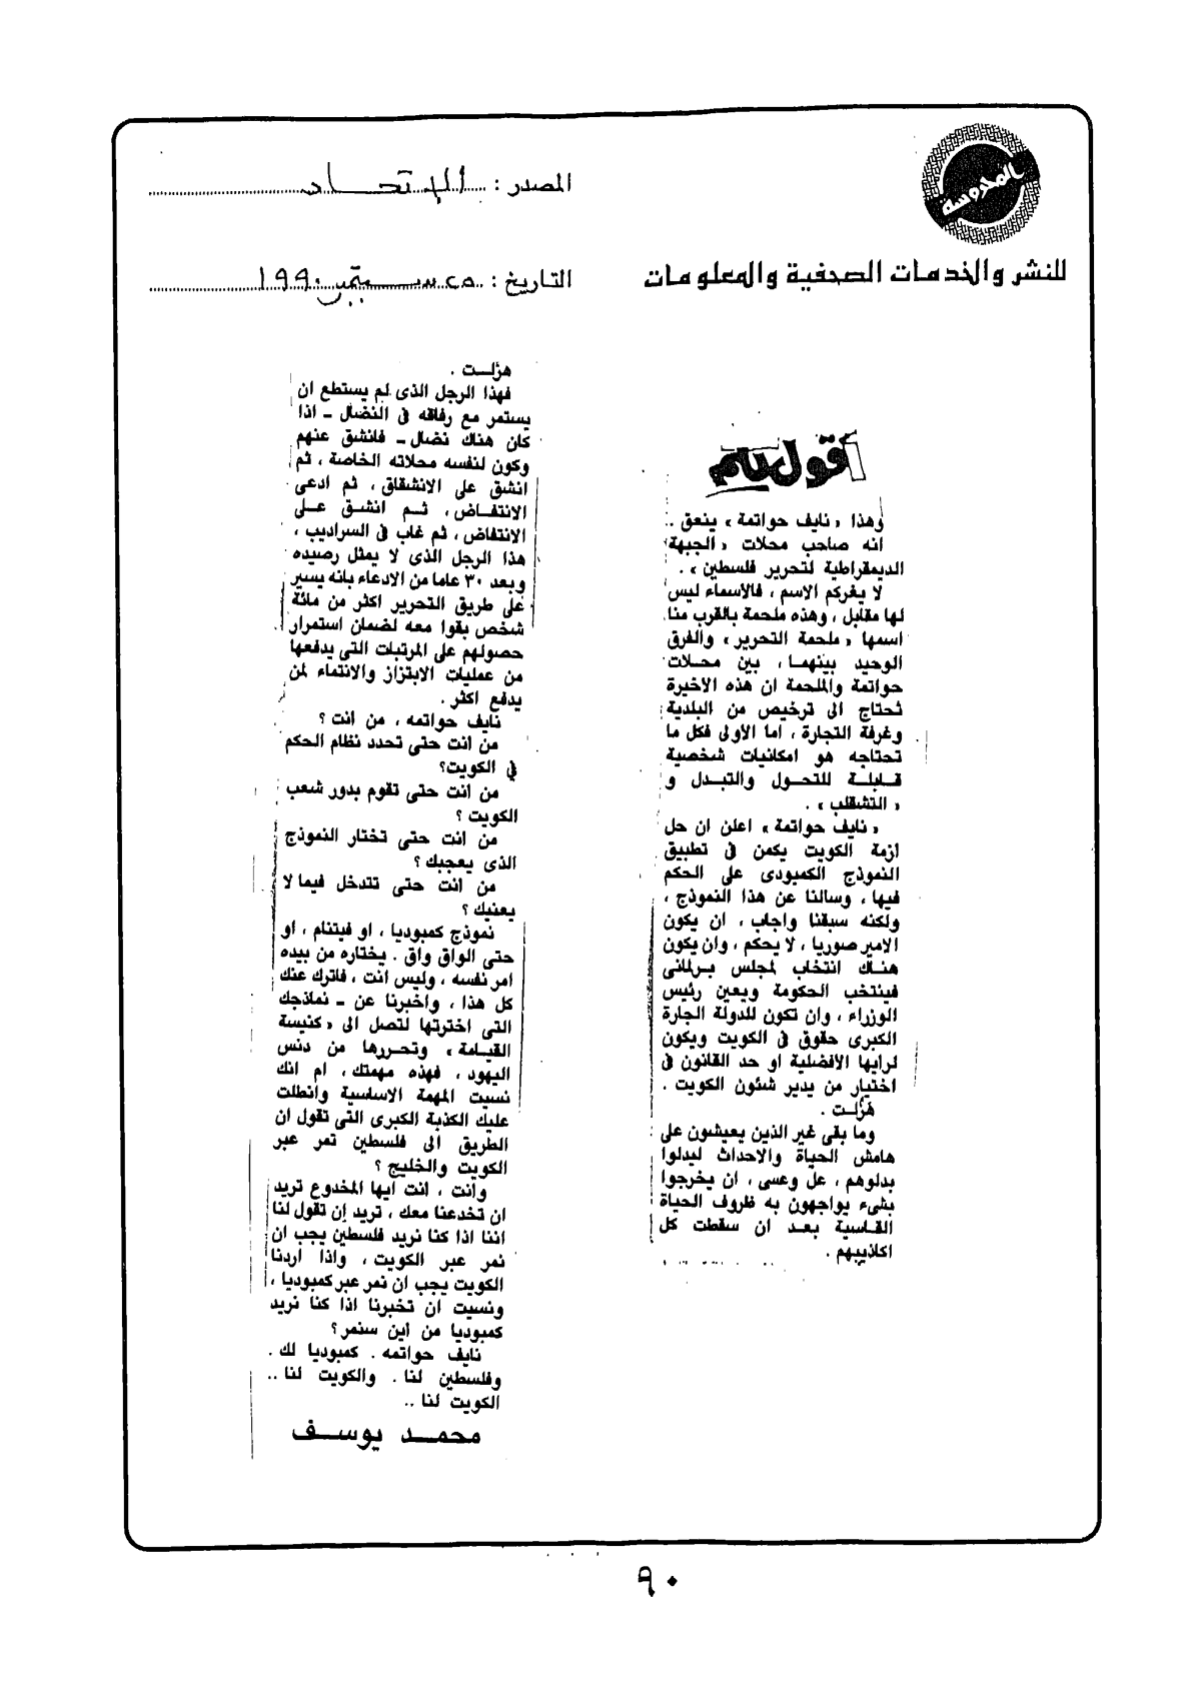 المحروسة
للنشر والخدمات الصحفية والمعلومات
المصدر : الإتحاد
التاريخ : ٢٥ سبتمبر ١٩٩٠
أقول لكم
وهذا « نايف حواتمة » ينعق ..
انه صاحب محلات « الجبهة
الديمقراطية لتحرير فلسطين » .
لا يغركم الاسم ، فالاسماء ليس
لها مقابل ، وهذه ملحمة بالقرب منا
اسمها « ملحمة التحرير » والفرق
الوحيد بينهما ، بين محلات
حواتمة والملحمة ان هذه الاخيرة
تحتاج الى ترخيص من البلدية
وغرفة التجارة ، اما الأولى فكل ما
تحتاجه هو امكانيات شخصية
قابلة للتحول والتبدل و
« التشقلب » .
« نايف حواتمة » اعلن ان حل
ازمة الكويت يكمن في تطبيق
النموذج الكمبودى على الحكم
فيها ، وسالنا عن هذا النموذج ،
ولكنه سبقنا واجاب ، ان يكون
الامير صوريا ، لا يحكم ، وان يكون
هناك انتخاب لمجلس برلمانى
فينتخب الحكومة ويعين رئيس
الوزراء ، وان تكون للدولة الجارة
الكبرى حقوق في الكويت ويكون
لرايها الافضلية او حد القانون في
اختيار من يدير شئون الكويت .
هزلت .
وما بقى غير الذين يعيشون على
هامش الحياة والاحداث ليدلوا
بدلوهم ، عل وعسى ، ان يخرجوا
بشىء يواجهون به ظروف الحياة
القاسية بعد ان سقطت كل
اكاذيبهم .
هزلت .
فهذا الرجل الذى لم يستطع ان
يستمر مع رفاقه في النضال - اذا
كان هناك نضال - فانشق عنهم
وكون لنفسه محلاته الخاصة ، ثم
انشق على الانشقاق ، ثم ادعى
الانتفاض ، ثم انشق على
الانتفاض ، ثم غاب في السراديب ،
هذا الرجل الذى لا يمثل رصيده
وبعد ٣٠ عاما من الادعاء بانه يسير
على طريق التحرير اكثر من مائة
شخص بقوا معه لضمان استمرار
حصولهم على المرتبات التى يدفعها
من عمليات الابتزاز والانتماء لمن
يدفع اكثر .
نايف حواتمه ، من انت ؟
من انت حتى تحدد نظام الحكم
في الكويت؟
من انت حتى تقوم بدور شعب
الكويت ؟
من انت حتى تختار النموذج
الذى يعجبك ؟
من انت حتى تتدخل فيما لا
يعنيك ؟
نموذج كمبوديا ، او فيتنام ، او
حتى الواق واق . يختاره من بيده
امر نفسه ، وليس انت ، فاترك عنك
كل هذا ، واخبرنا عن - نماذجك
التى اخترتها لتصل الى « كنيسة
القيامة » وتحررها من دنس
اليهود ، فهذه مهمتك ، ام انك
نسيت المهمة الاساسية وانطلت
عليك الكذبة الكبرى التى تقول ان
الطريق الى فلسطين تمر عبر
الكويت والخليج ؟
وانت ، انت ايها المخدوع تريد
ان تخدعنا معك ، تريد ان تقول لنا
اننا اذا كنا نريد فلسطين يجب ان
نمر عبر الكويت ، واذا اردنا
الكويت يجب ان نمر عبر كمبوديا ،
ونسيت ان تخبرنا اذا كنا نريد
كمبوديا من اين سنمر؟
نايف حواتمه . كمبوديا لك .
وفلسطين لنا . والكويت لنا ..
الكويت لنا ..
محمد يوسف
٩٠